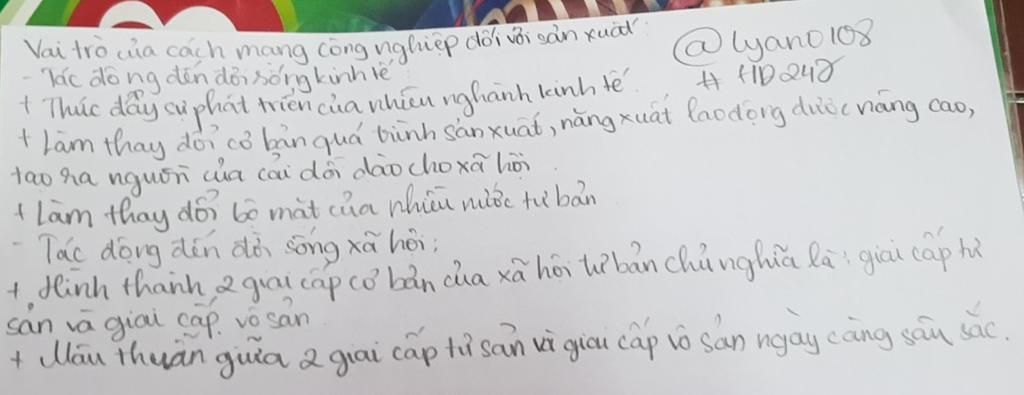 Vai trò của cách mang công nghiệp đối với sản xuất:
@lyano108
- Tác động đến đời sống kinh tế
# HD247
+ Thúc đẩy sự phát triển của nhiều nghành kinh tế.
+ Làm thay đổi cơ bản quá trình sản xuất, năng xuất lao động được nâng cao,
tạo ra nguồn của cải dồi dào cho xã hội
+ Làm thay đổi bộ mặt của nhiều nước tư bản
- Tác động đến đời sống xã hội:
+ Hình thành 2 giai cấp cơ bản của xã hội tư bản chủ nghĩa là: giai cấp tư
sản và giai cấp vô sản
+ Mâu thuẫn giữa 2 giai cấp tư sản và giai cấp vô sản ngày càng sâu sắc.